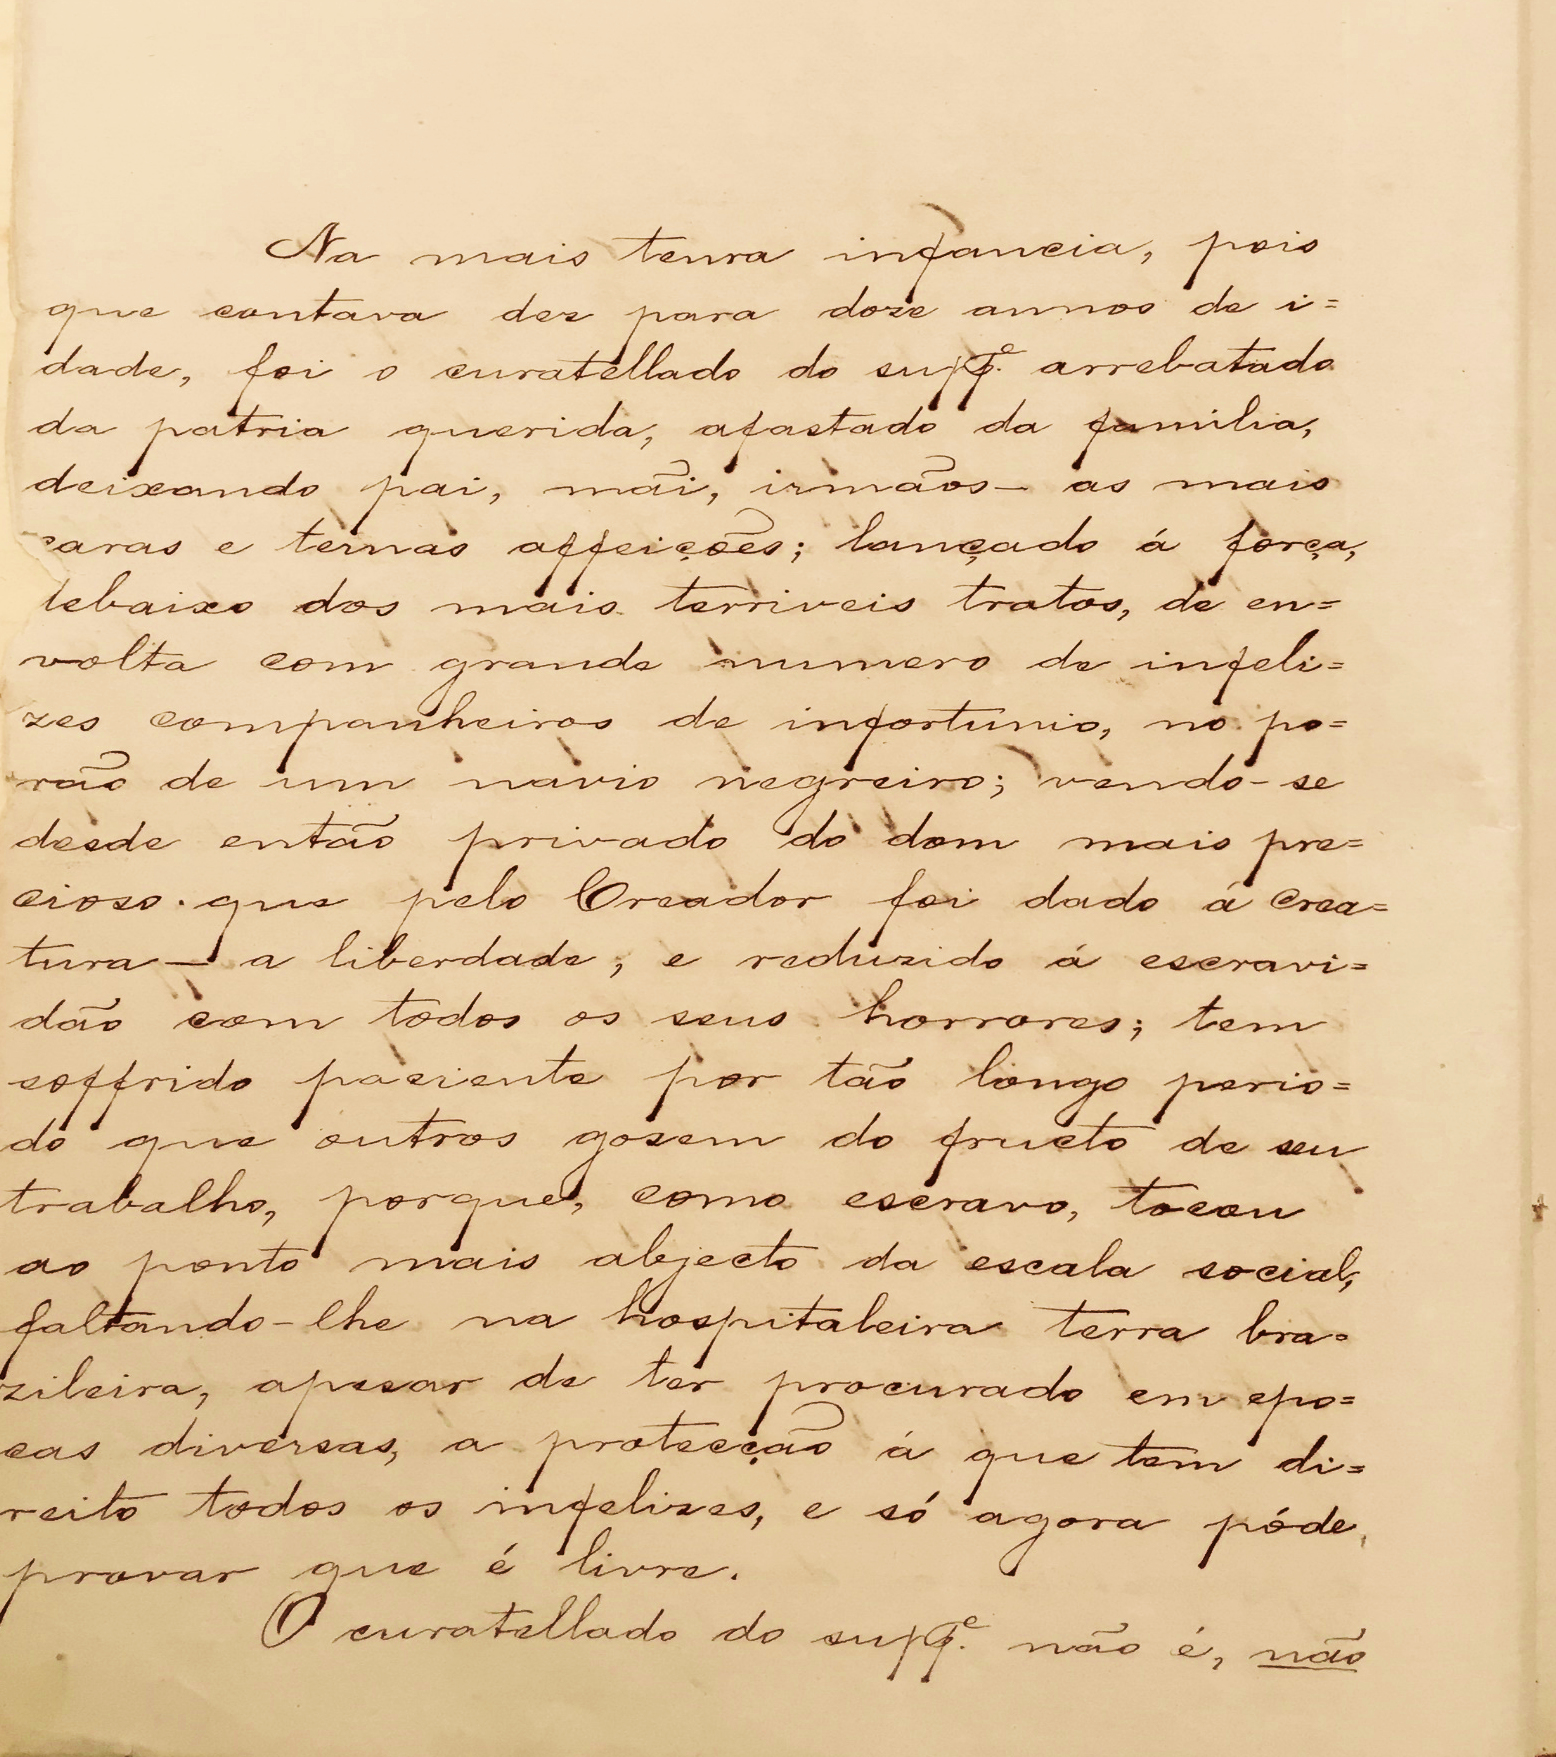 Na mais tenra infancia, pois
que contava dez para doze annos de i=
dade, foi o curatellado do supp.e arrebatado
da patria querida, afastado da familia,
deixando pai, mãi, irmãos — as mais
caras e ternas affeições; lançado á força,
debaixo dos mais terriveis tratos, de en=
volta com grande numero de infeli=
zes companheiros de infortunio, no po=
rão de um navio negreiro; vendo-se
desde então privado do dom mais pre=
cioso que pelo Creador foi dado á crea=
tura — a liberdade, e reduzido á escravi=
dão com todos os seus horrores; tem
soffrido paciente por tão longo perio=
do que outros gosem do fructo de seu
trabalho, porque, como escravo, tocou
ao ponto mais abjecto da escala social,
faltando-lhe na hospitaleira terra bra=
zileira, apesar de ter procurado em epo=
cas diversas, a protecção á que tem di=
reito todos os infelizes, e só agora póde
provar que é livre.
O curatellado do supp.e não é, não